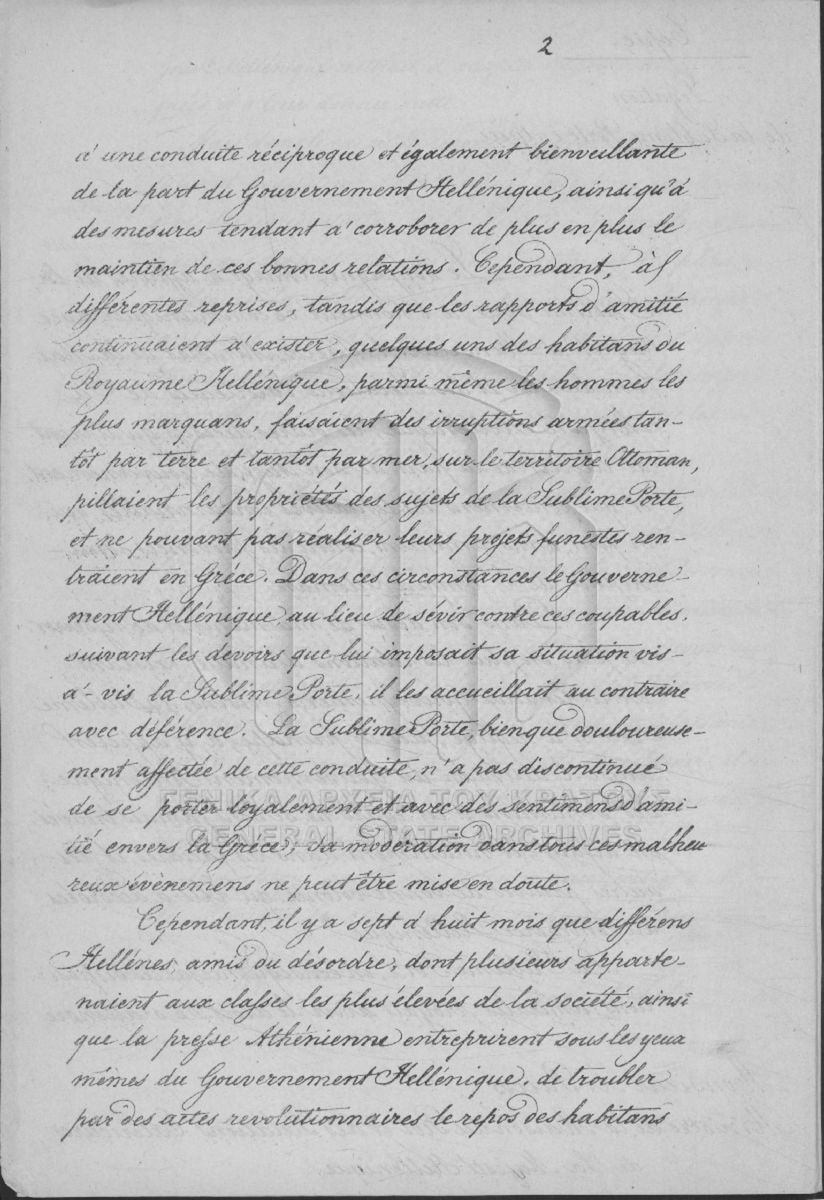 2
à une conduite réciproque et également bienveillante
de la part du Gouvernement Hellénique, ainsi qu'à
des mesures tendant à corroborer de plus en plus le
maintien de ces bonnes relations. Cependant, à
différentes reprises, tandis que les rapports d'amitié
continuaient à exister, quelques uns des habitans du
Royaume Hellénique, parmi même les hommes les
plus marquans, faisaient des irruptions armées tan-
tôt par terre et tantôt par mer, sur le territoire Ottoman,
pillaient les propriétés des sujets de la Sublime Porte,
et ne pouvant pas réaliser leurs projets funestes ren-
traient en Gréce. Dans ces circonstances le Gouverne-
ment Hellénique, au lieu de sévir contre ces coupables,
suivant les devoirs que lui imposait sa situation vis-
à-vis la Sublime Porte, il les accueillait au contraire
avec déférence. La Sublime Porte, bien que douloureuse-
ment affectée de cette conduite, n'a pas discontinué
de se porter loyalement et avec des sentimens d'ami-
tié envers la Gréce; sa modération dans tous ces malheu
reux évènemens ne peut être mise en doute.
Cependant, il y a sept à huit mois que différens
Hellénes, amis du désordre, dont plusieurs apparte-
naient aux classes les plus élevées de la société, ainsi
que la presse Athénienne entreprirent sous les yeux
mêmes du Gouvernement Hellénique, de troubler
par des actes revolutionnaires le repos des habitans
ΓΕΝΙΚΑ ΑΡΧΕΙΑ ΤΟΥ ΚΡΑΤΟΥΣ
GENERAL STATE ARCHIVES